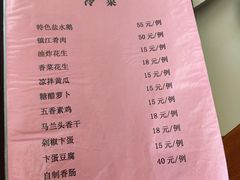 冷菜
特色盐水鹅 55元/例
镇江肴肉 50元/例
油炸花生 15元/例
香菜花生 18元/例
凉拌黄瓜 15元/例
糖醋萝卜 15元/例
五香素鸡 15元/例
马兰头香干 18元/例
剁椒卞蛋 18元/例
卞蛋豆腐 15元/例
自制香肠 40元/例